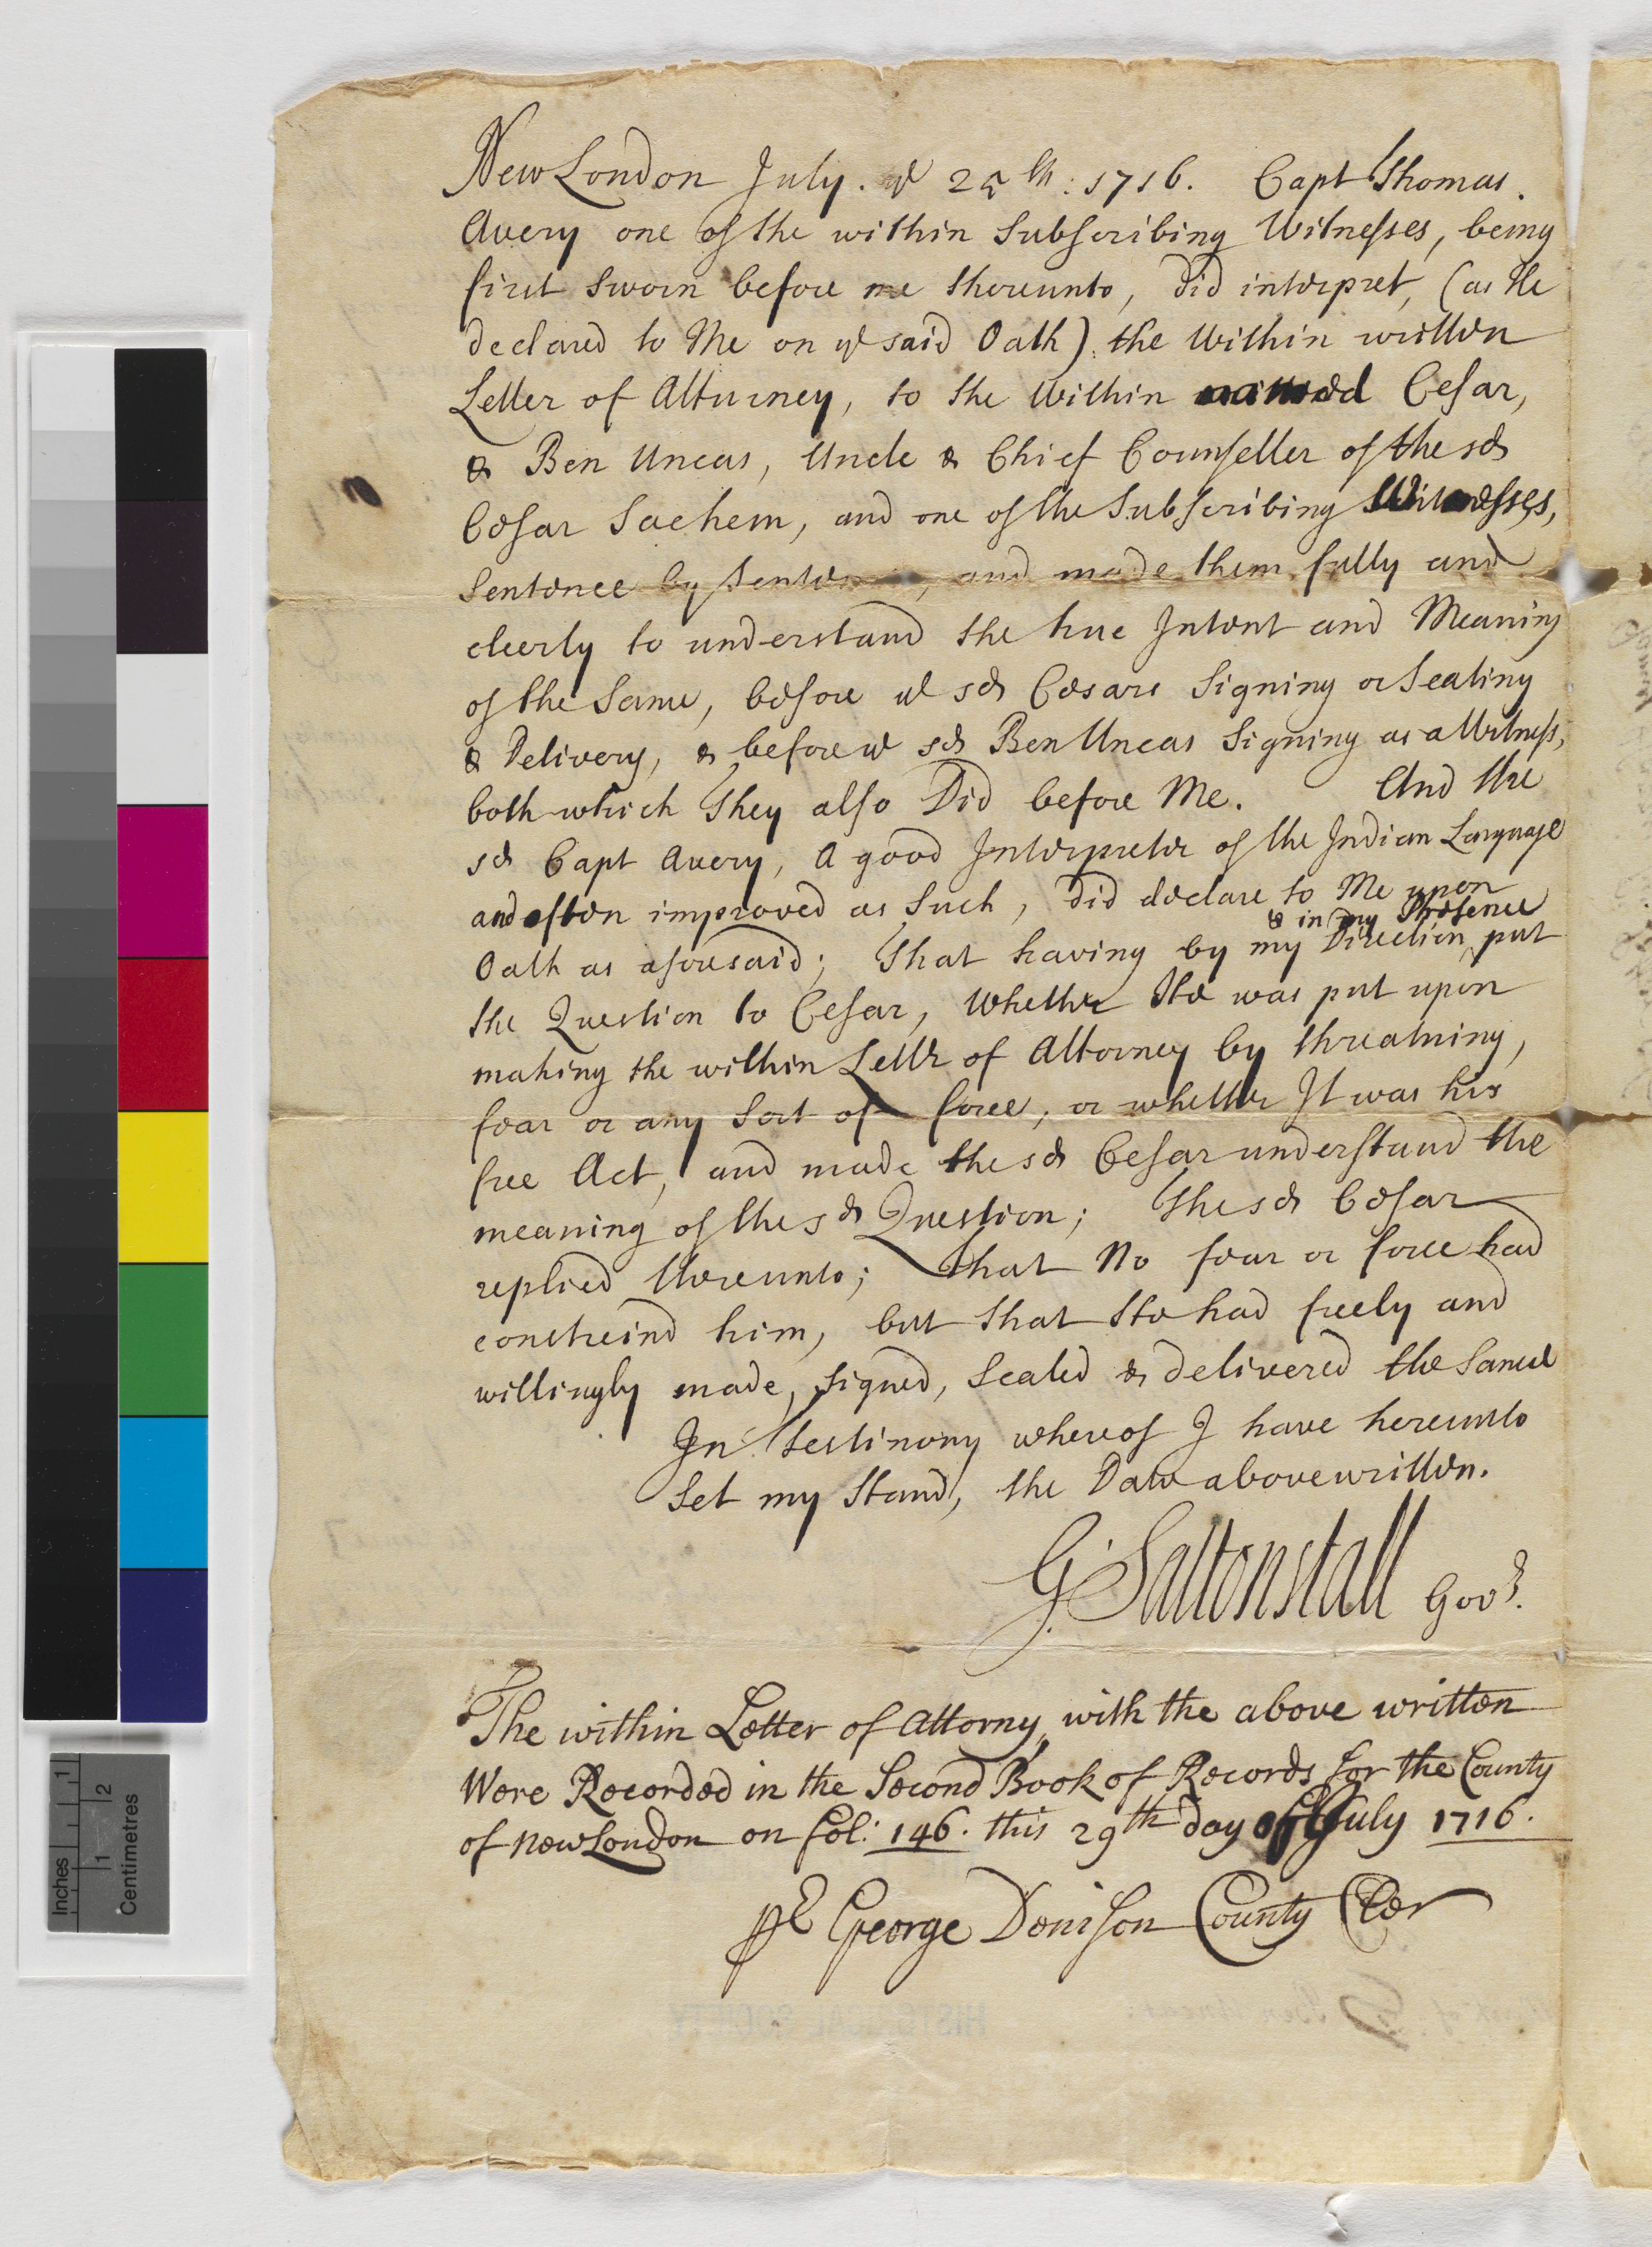 New London July. ye 25th: 1716. Capt Thomas
Avery one of the within Subscribing Witnesses, being
first sworn before me thereunto, did interpret, (as He
declared to Me on ye said Oath) the Within written
Letter of Atturney, to the Within named Cesar,
& Ben Uncas, Uncle & Chief Counseller of the sd
Cesar Sachem, and one of the Subscribing Witnesses,
Sentence by Sentence, and made them fully and
cleerly to understand the true Intent and Meaning
of the Same, before ye sd Cesars Signing or Sealing
& Delivery, & before ye sd Ben Uncas Signing as a Witness,
both which They also Did before Me. And the
sd Capt Avery, a good Interpreter of the Indian Language
and often improved as Such, did declare to Me upon
& in my Presence
Oath as aforesaid; That having by my Direction put
the Question to Cesar, Whether He was put upon
making the within Lettr of Attorney by threatning,
fear or any Sort of force, or whether It was his
free Act, and made the sd Cesar understand the
meaning of the sd Question; The sd Cesar
replied thereunto; That No fear or force had
constreind him, but that He had freely and
willingly made, signed, Sealed & delivered the Same
In Testimony whereof I have hereunto
Set my Hand, the Date above written.
G. Saltonstall Govr.
The within Letter of Attorny, with the above written
Were Recorded in the Second Book of Records for the County
of New London on fol: 146. this 29th day of July 1716.
pr George Denison County Cler
Inches 1
Centimetres 1 2
HISTORICAL SOCIETY